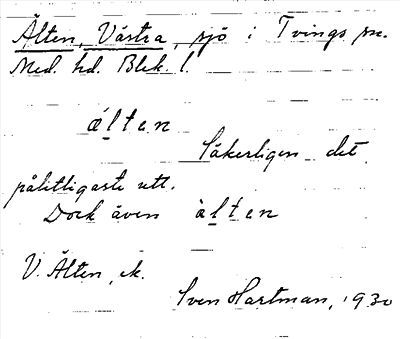 Älten, Västra, sjö i Tvings sn.
Med. hd. Blek. l.
álten
Säkerligen det
pålitligaste utt.
Dock även àlten
V. Älten, ek.
Sven Hartman, 1930